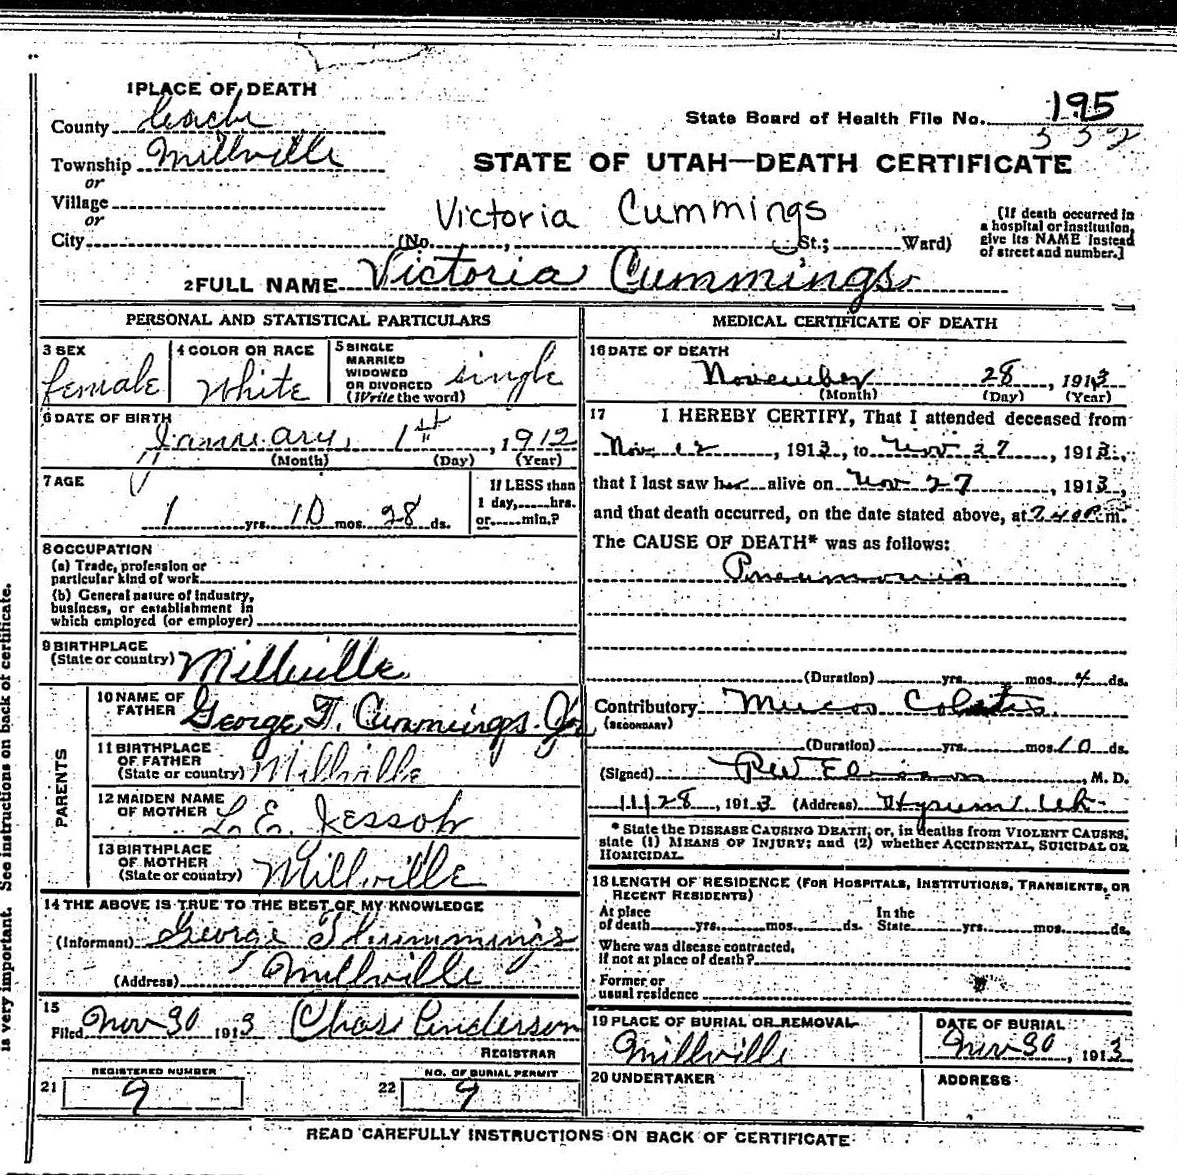 1 PLACE OF DEATH
County Cache
Township Millville
or
Village
or
City (No. , St.; Ward)
State Board of Health File No. 195
552
STATE OF UTAH—DEATH CERTIFICATE
Victoria Cummings
[If death occurred in
a hospital or institution,
give its NAME instead
of street and number.]
2 FULL NAME Victoria Cummings
PERSONAL AND STATISTICAL PARTICULARS
3 SEX
female
4 COLOR OR RACE
White
5 SINGLE
MARRIED
WIDOWED
OR DIVORCED
(Write the word)
single
6 DATE OF BIRTH
January 1st, 1912
(Month) (Day) (Year)
7 AGE
1 yrs. 10 mos. 28 ds.
If LESS than
1 day, hrs.
or min.?
8 OCCUPATION
(a) Trade, profession or
particular kind of work
(b) General nature of industry,
business, or establishment in
which employed (or employer)
9 BIRTHPLACE
(State or country) Millville
PARENTS
10 NAME OF
FATHER George T. Cummings Jr
11 BIRTHPLACE
OF FATHER
(State or country) Millville
12 MAIDEN NAME
OF MOTHER L. E. Jessop
13 BIRTHPLACE
OF MOTHER
(State or country) Millville
14 THE ABOVE IS TRUE TO THE BEST OF MY KNOWLEDGE
(Informant) George T Cummings
(Address) Millville
15
Filed Nov 30 1913 Chas Anderson
REGISTRAR
21 REGISTERED NUMBER
9
22 NO. OF BURIAL PERMIT
9
MEDICAL CERTIFICATE OF DEATH
16 DATE OF DEATH
November 28, 1913
(Month) (Day) (Year)
17 I HEREBY CERTIFY, That I attended deceased from
Nov 12, 1913, to Nov 27, 1913,
that I last saw her alive on Nov 27, 1913,
and that death occurred, on the date stated above, at 7 40 P m.
The CAUSE OF DEATH* was as follows:
Pneumonia
(Duration) yrs. mos. 4 ds.
Contributory Mucos Colitis
(SECONDARY)
(Duration) yrs. mos. 10 ds.
(Signed) , M. D.
11/28, 1913 (Address) Hyrum Ut
* State the DISEASE CAUSING DEATH, or, in deaths from VIOLENT CAUSES,
state (1) MEANS OF INJURY; and (2) whether ACCIDENTAL, SUICIDAL OR
HOMICIDAL.
18 LENGTH OF RESIDENCE (FOR HOSPITALS, INSTITUTIONS, TRANSIENTS, OR
RECENT RESIDENTS)
At place
of death yrs. mos. ds.
In the
State yrs. mos. ds.
Where was disease contracted,
if not at place of death?
Former or
usual residence
19 PLACE OF BURIAL OR REMOVAL
Millville
DATE OF BURIAL
Nov 30, 1913
20 UNDERTAKER
ADDRESS
READ CAREFULLY INSTRUCTIONS ON BACK OF CERTIFICATE
is very important. See instructions on back of certificate.